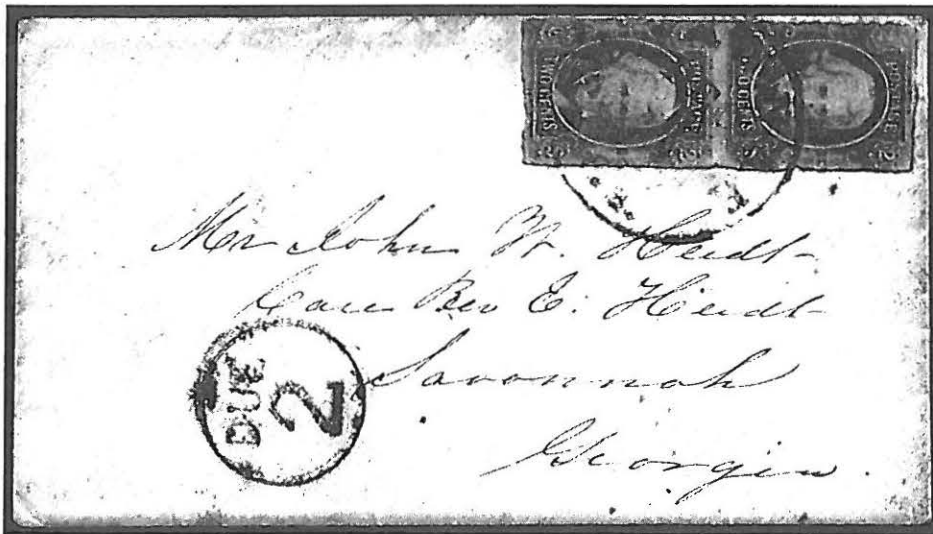 POSTAGE
TWO CENTS
2
2
POSTAGE
2
Mr John W. Heidt
Care Rev E. Heidt
Savannah
Georgia.
DUE
2